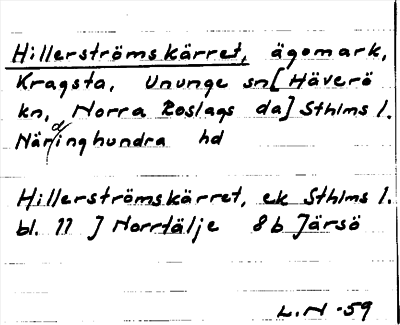 Hillerströmskärret, ägomark,
Kragsta, Ununge sn [Häverö
kn, Norra Roslags da] Sthlms l.
Närdinghundra hd
Hillerströmskärret, ek Sthlms l.
bl. 77 J Norrtälje 8b Järsö
L.N -59